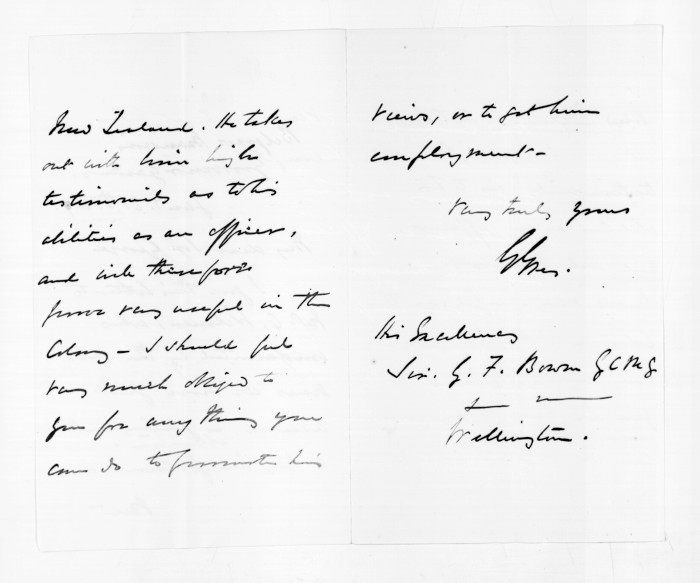 New Zealand. He takes
out with him high
testimonials as to his
abilities as an officer,
and will therefore
prove very useful in the
Colony – I should feel
very much obliged to
you for any thing you
can do to promote his
views, or to get him
employment –
Very truly yours
GGrey.
His Excellency
Sir. G. F. Bowen G C M G
Wellington.